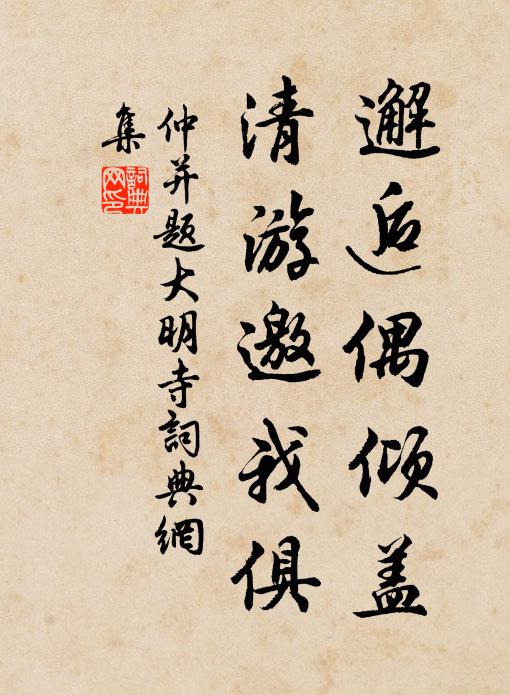 邂逅偶倾盖
清游邀我俱
仲并题大明寺詞典網
集
詞典網印